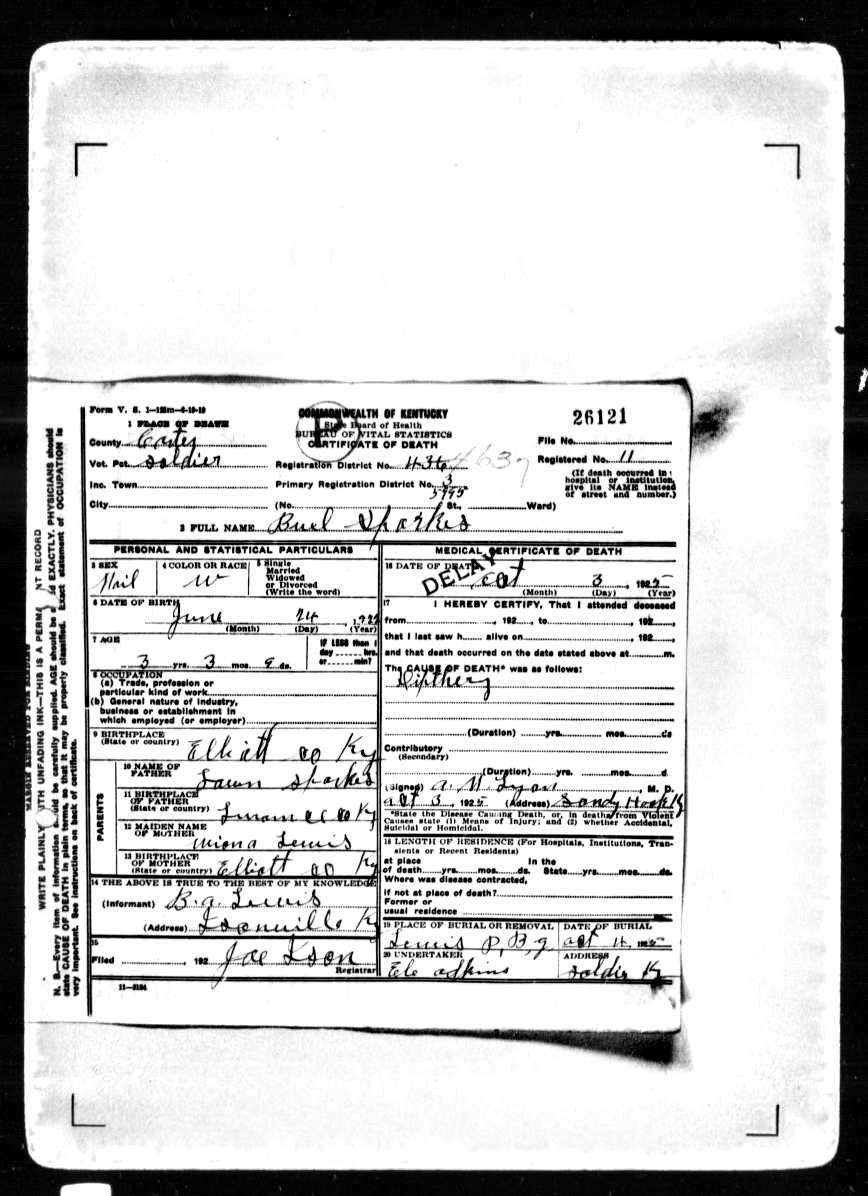 Form V. S. 1—125m—6-19-19
COMMONWEALTH OF KENTUCKY
State Board of Health
BUREAU OF VITAL STATISTICS
CERTIFICATE OF DEATH
26121
1 PLACE OF DEATH
County Carter
Vot. Pct. Soldier
Inc. Town
City
Registration District No. 436
4637
Primary Registration District No. 3
5995
(No. St., Ward)
File No.
Registered No. 11
(If death occurred in
hospital or institution,
give its NAME instead
of street and number.)
2 FULL NAME Buel Sparkes
PERSONAL AND STATISTICAL PARTICULARS
3 SEX
Mail
4 COLOR OR RACE
W
5 Single
Married
Widowed
or Divorced
(Write the word)
6 DATE OF BIRTH
June 24, 1922
(Month) (Day) (Year)
7 AGE
3 yrs. 3 mos. 9 ds.
IF LESS than 1
day ...... hrs.
or ...... min?
8 OCCUPATION
(a) Trade, profession or
particular kind of work
(b) General nature of industry,
business or establishment in
which employed (or employer)
9 BIRTHPLACE
(State or country) Elliott co Ky
PARENTS
10 NAME OF
FATHER
Sparkes
11 BIRTHPLACE
OF FATHER
(State or country) co Ky
12 MAIDEN NAME
OF MOTHER
Lewis
13 BIRTHPLACE
OF MOTHER
(State or country) Elliott co Ky
14 THE ABOVE IS TRUE TO THE BEST OF MY KNOWLEDGE
(Informant) B. a. Lewis
(Address) Isonville Ky
15
Filed , 192 Joe Ison
Registrar
11—3184
MEDICAL CERTIFICATE OF DEATH
DELAY
16 DATE OF DEATH
oct 3, 1925
(Month) (Day) (Year)
17 I HEREBY CERTIFY, That I attended deceased
from , 192 , to , 192 ,
that I last saw h alive on , 192 ,
and that death occurred on the date stated above at m.
The CAUSE OF DEATH* was as follows:
Dipthery
(Duration) yrs. mos. ds
Contributory
(Secondary)
(Duration) yrs. mos. d
(Signed) a. M. Lyon, M. D.
oct 3, 1925 (Address) Sandy Hook Ky
*State the Disease Causing Death, or, in deaths from Violent
Causes state (1) Means of Injury; and (2) whether Accidental,
Suicidal or Homicidal.
18 LENGTH OF RESIDENCE (For Hospitals, Institutions, Tran-
sients or Recent Residents)
at place In the
of death yrs. mos. ds. State yrs. mos. ds.
Where was disease contracted,
if not at place of death?
Former or
usual residence
19 PLACE OF BURIAL OR REMOVAL
Lewis P, B, g
DATE OF BURIAL
oct 4, 1925
20 UNDERTAKER
Ele adkins
ADDRESS
Soldier Ky
WRITE PLAINLY WITH UNFADING INK—THIS IS A PERMANENT RECORD
N. B.—Every item of information should be carefully supplied. AGE should be stated EXACTLY. PHYSICIANS should
state CAUSE OF DEATH in plain terms, so that it may be properly classified. Exact statement of OCCUPATION is
very important. See instructions on back of certificate.